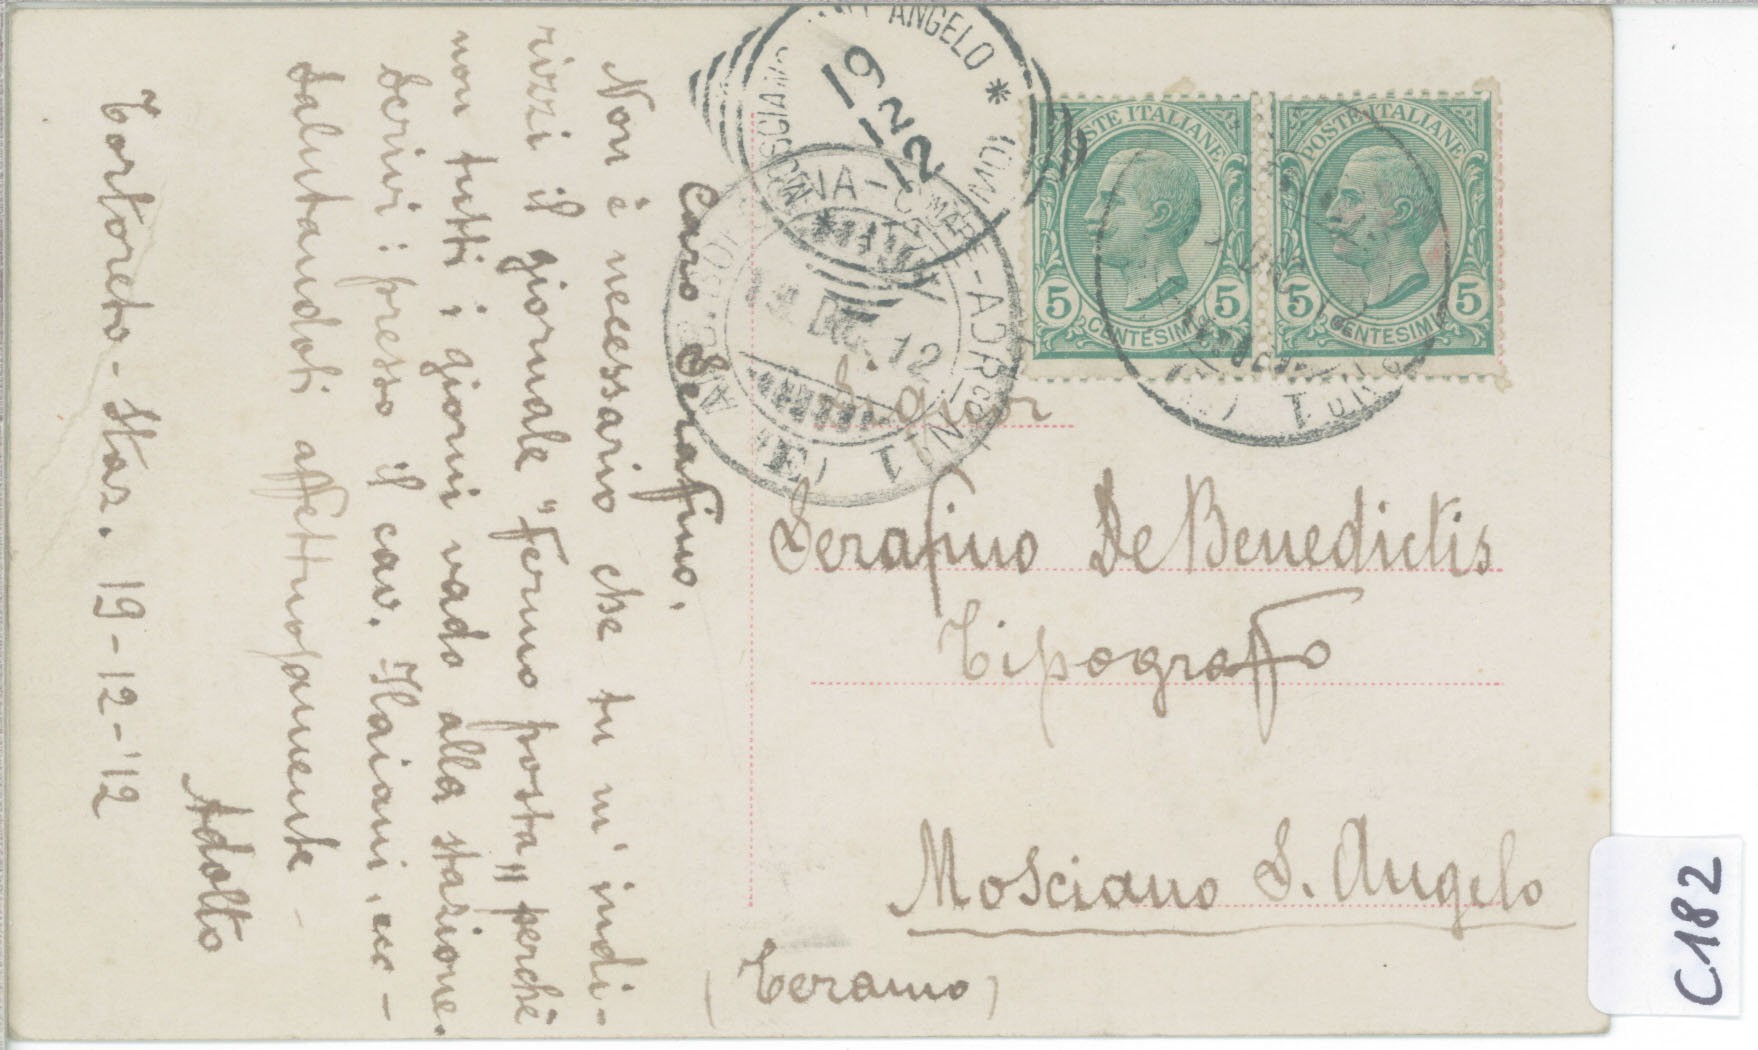 Caro Serafino.
Non è necessario che tu m'indi-
rizzi il giornale "fermo posta" perchè
non tutti i giorni vado alla stazione.
Scrivi: presso il cav. Ilaiani, ecc -
Salutandoti affettuosamente -
Adolfo
Tortoreto - Staz. 19-12-'12
ANGELO * MOSCIANO
19 12 12
19 DIC. 12
POSTE ITALIANE
5 CENTESIMI 5
POSTE ITALIANE
5 CENTESIMI 5
Signor
Serafino De Benedictis
Tipografo
Mosciano S. Angelo
(Teramo)
C182